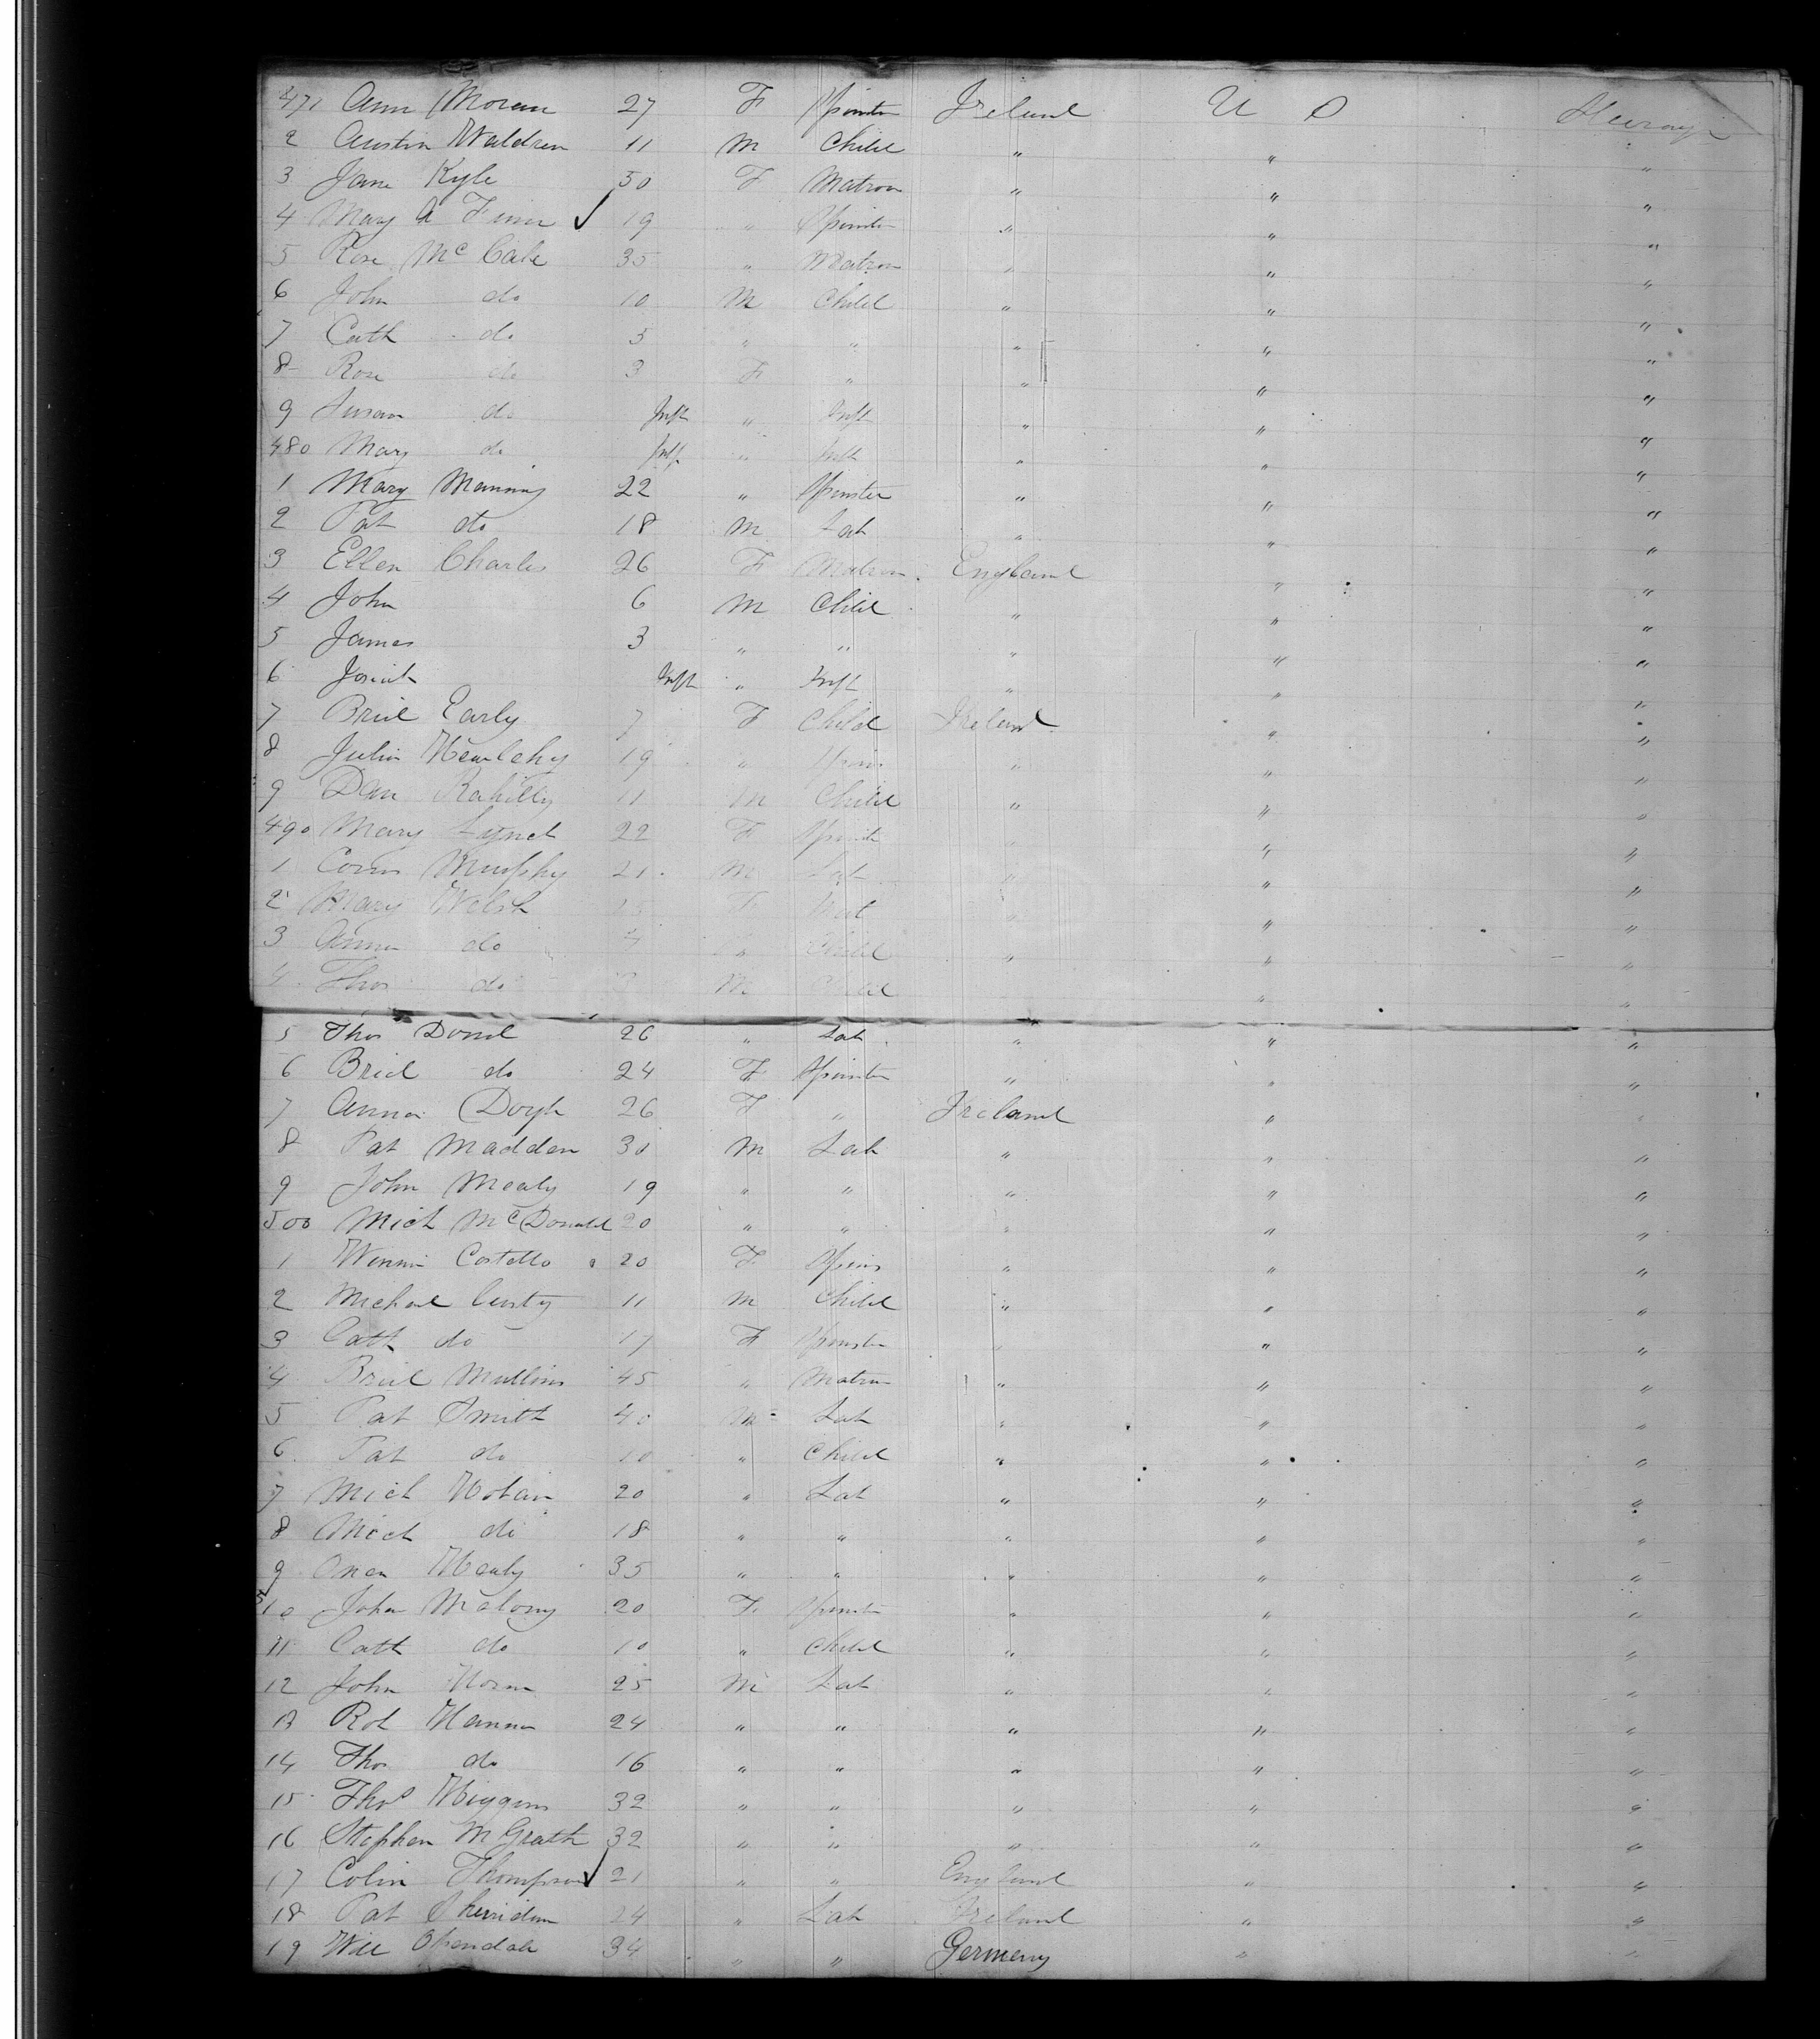 471 Ann Moran 27 F Spinster Ireland U S Steerage
2 Austin Waldren 11 M Child " " "
3 Jane Kyle 50 F Matron " " "
4 Mary A Finn ✓ 19 " Spinster " " "
5 Rose McCabe 35 " Matron " " "
6 John do 10 M Child " " "
7 Cath do 5 " " " " "
8 Rose do 3 F " " " "
9 Susan do Inft " Inft " " "
480 Mary do Inft " Inft " " "
1 Mary Manning 22 " Spinster " " "
2 Pat do 18 M Lab " " "
3 Ellen Charles 26 F Matron England " "
4 John 6 M Child " " "
5 James 3 " " " " "
6 Josiah Inft " Inft " " "
7 Brid Early 7 F Child Ireland " "
8 Julia 19 " Spins " " "
9 Dan Rahilly 11 M Child " " "
490 Mary Lynch 22 F Spinster " " "
1 Corns Murphy 21 M Lab " " "
2 Mary Welsh 25 F Mat " " "
3 Anna do " Child " " "
4 Thos do M Child " " "
5 Thos Dond 26 " Lab " " "
6 Brid do 24 F Spinster " " "
7 Anna Doyle 26 F " Ireland " "
8 Pat Madden 30 M Lab " " "
9 John Mealy 19 " " " " "
500 Mich McDonald 20 " " " " "
1 Winnie Costello 20 F Spins " " "
2 Michael Custy 11 M Child " " "
3 Cath do 17 F Spinster " " "
4 Brid Mullins 45 " Matron " " "
5 Pat Smith 40 M Lab " " "
6 Pat do 10 " Child " " "
7 Mich 20 " Lab " " "
8 Mich do 18 " " " " "
9 Owen Healy 35 " " " " "
510 John Malony 20 F Spinster " " "
11 Cath do 10 " Child " " "
12 John Horan 25 M Lab " " "
13 Rob Hanna 24 " " " " "
14 Thos do 16 " " " " "
15 Thos Higgins 32 " " " " "
16 Stephen McGrath 32 " " " " "
17 Colin Thompson ✓ 21 " " England " "
18 Pat Sheridan 24 " Lab Ireland " "
19 Will 34 " " Germany " "